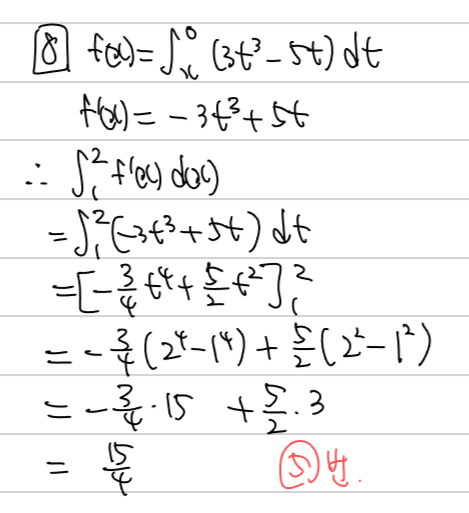 8 f(x)=∫ₓ⁰ (3t³-5t) dt
f'(x)= -3t³+5t
∴ ∫₁² f'(x) d(x)
=∫₁² (-3t³+5t) dt
=[-3/4 t⁴+5/2 t²]₁²
= -3/4 (2⁴-1⁴) + 5/2 (2²-1²)
= -3/4 · 15 + 5/2 · 3
= 15/4 ⑤번.